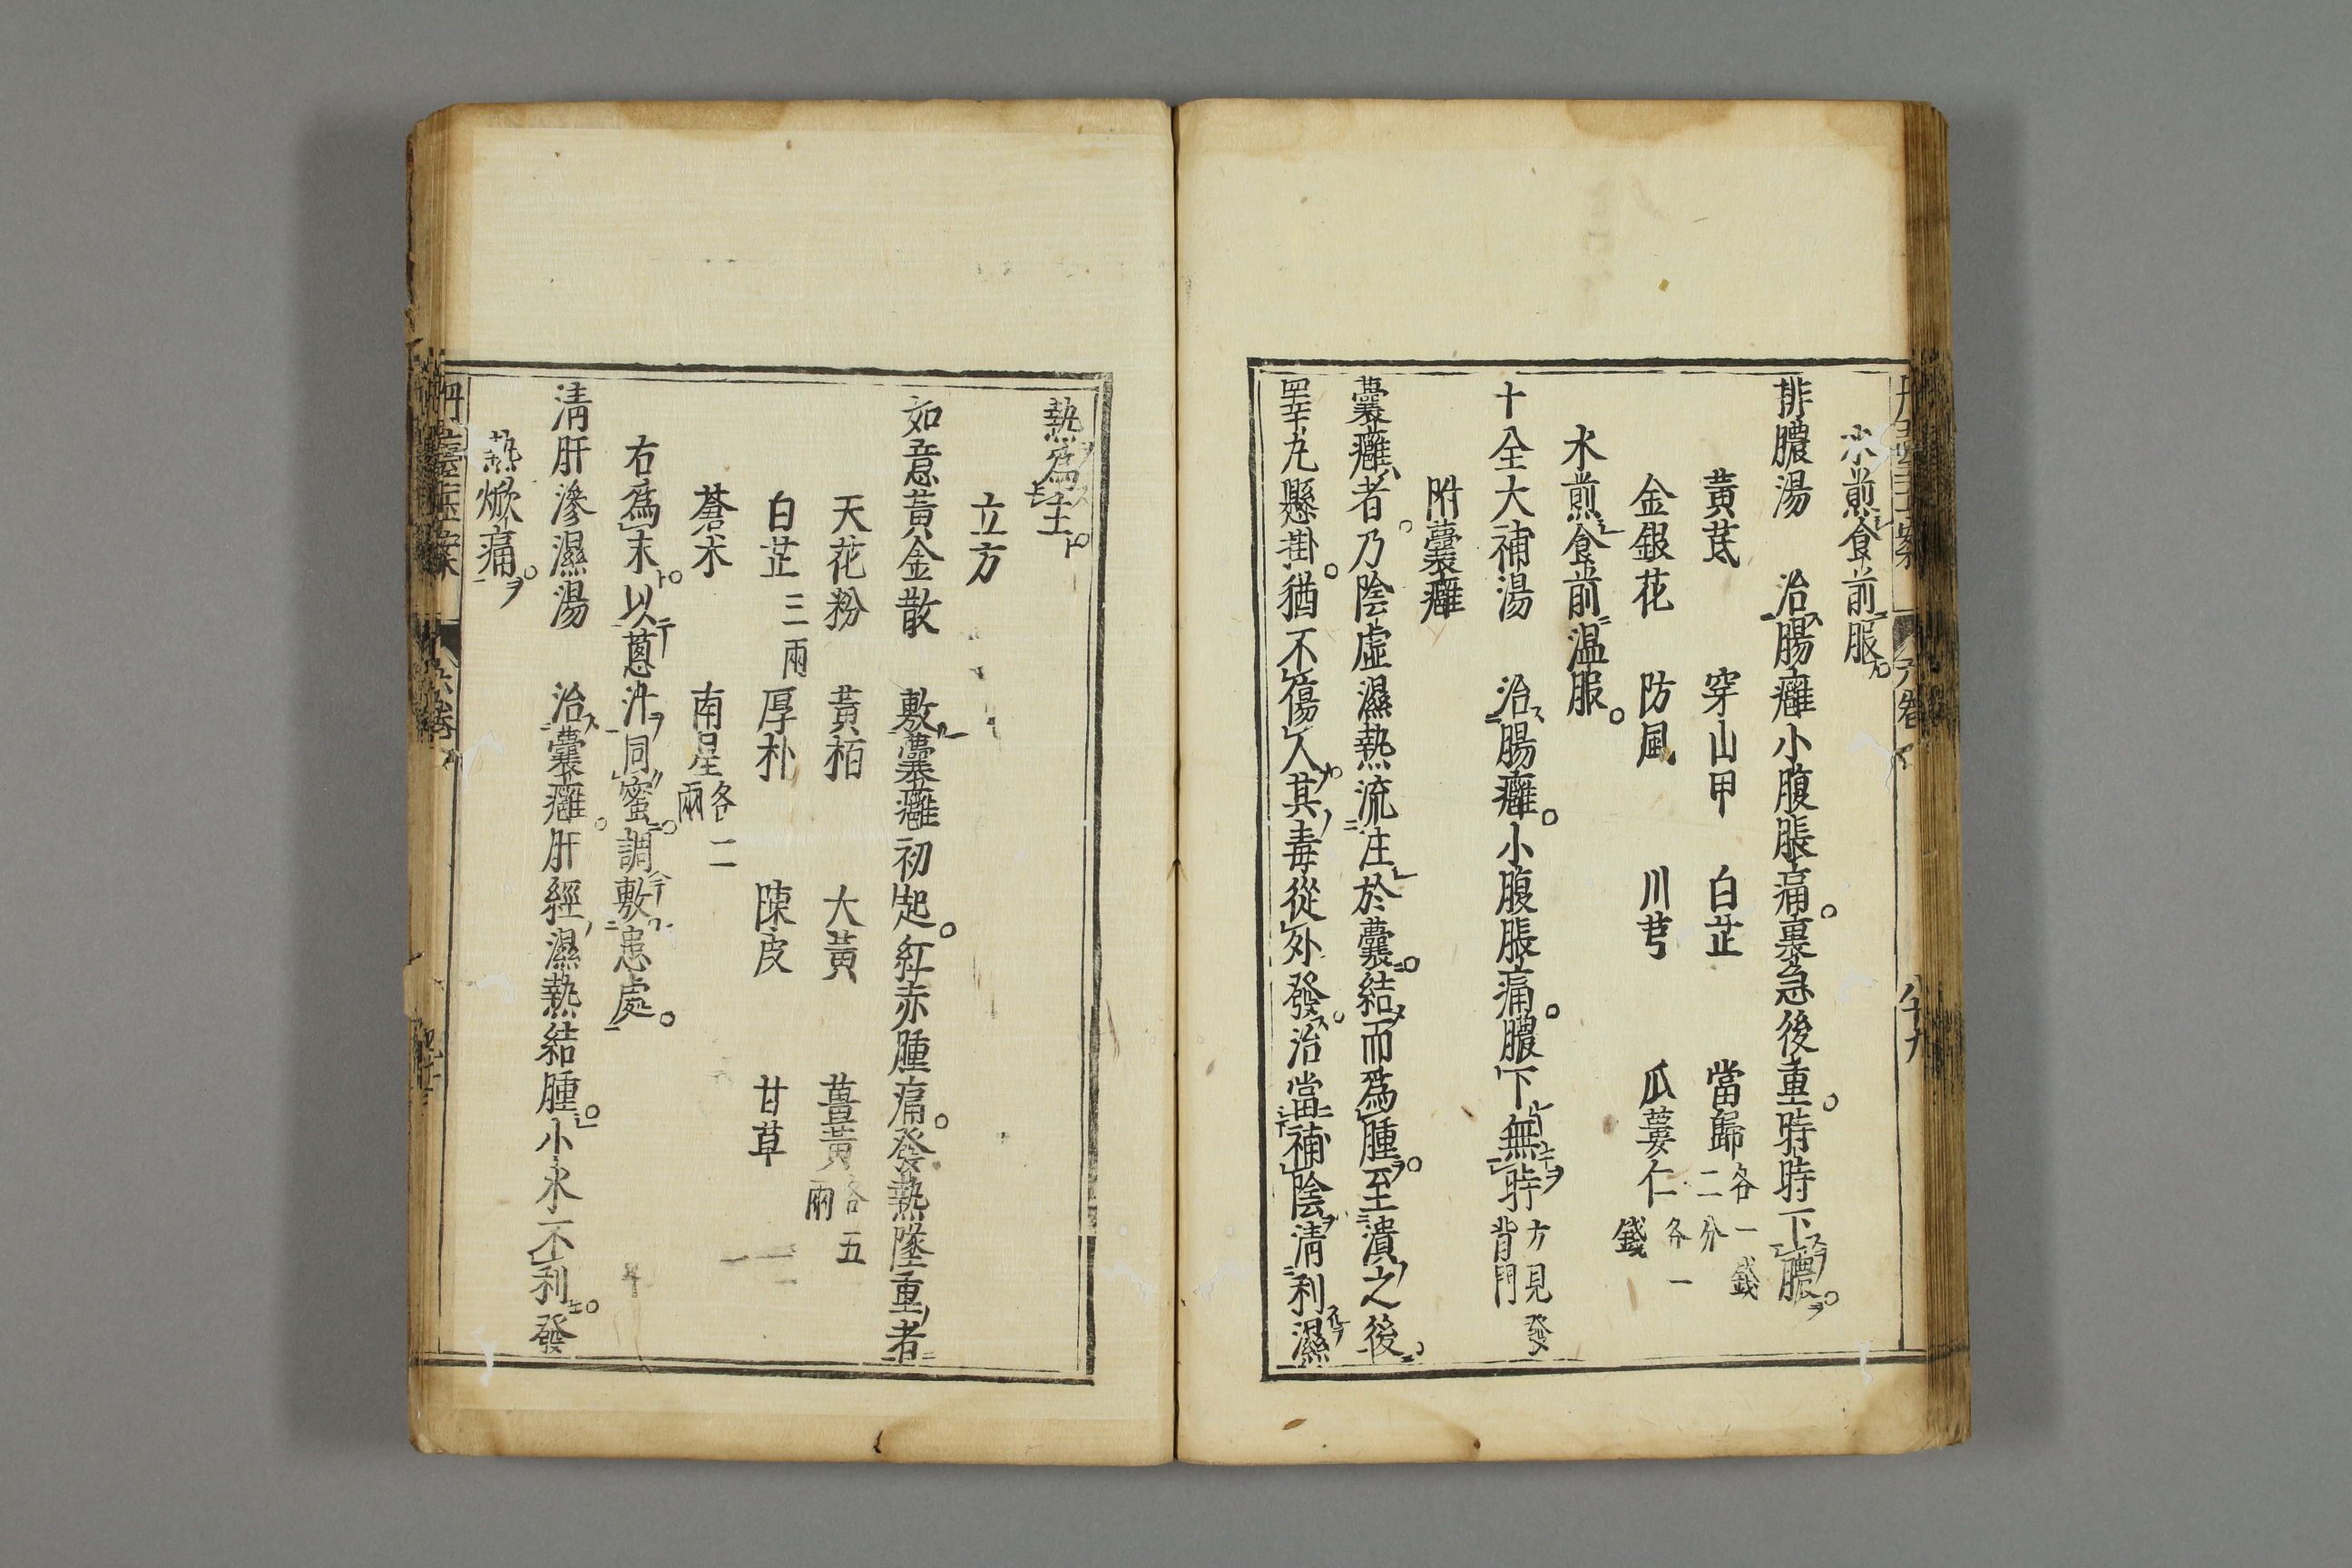 水煎食前服
排膿湯　治腸癰小腹脹痛裏急後重時時下膿
黃芪　穿山甲　白芷　當歸各一錢二分
金銀花　防風　川芎　瓜蔞仁各一錢
水煎食前温服
十全大補湯　治腸癰小腹脹痛膿下無時方見發背門
附囊癰
囊癰者乃陰虛濕熱流注於囊結而爲腫至潰之後
睪丸懸掛猶不傷人其毒從外發治當補陰清利濕
熱爲主
立方
如意黃金散　敷囊癰初起紅赤腫痛發熱墜重者
天花粉　黃栢　大黃　薑黃各五兩
白芷三兩　厚朴　陳皮　甘草
蒼朮　南星各二兩
右爲末以蔥汁同蜜調敷患處
清肝滲濕湯　治囊癰肝經濕熱結腫小水不利發
熱焮痛